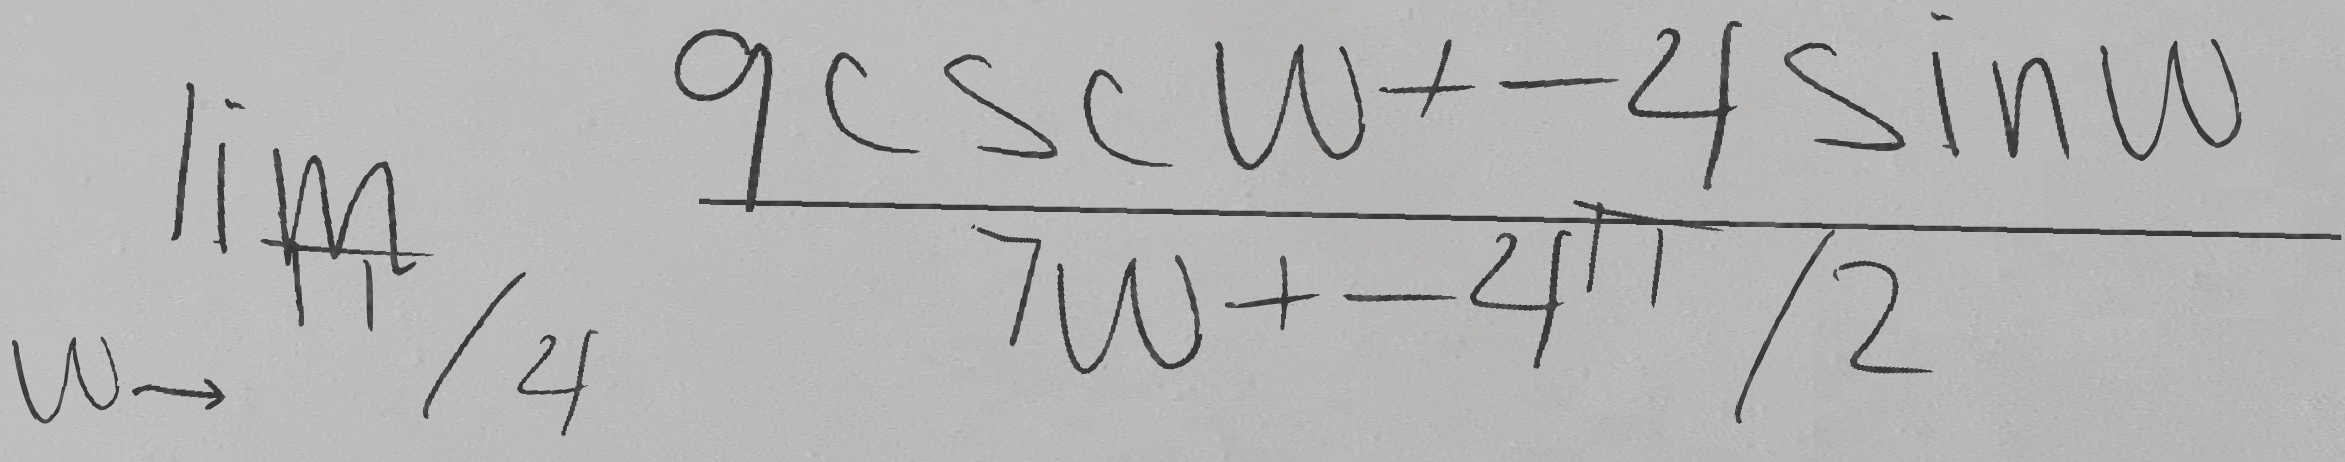 lim w→π/4 (9 csc w + -4 sin w)/(7w + -4π/2)